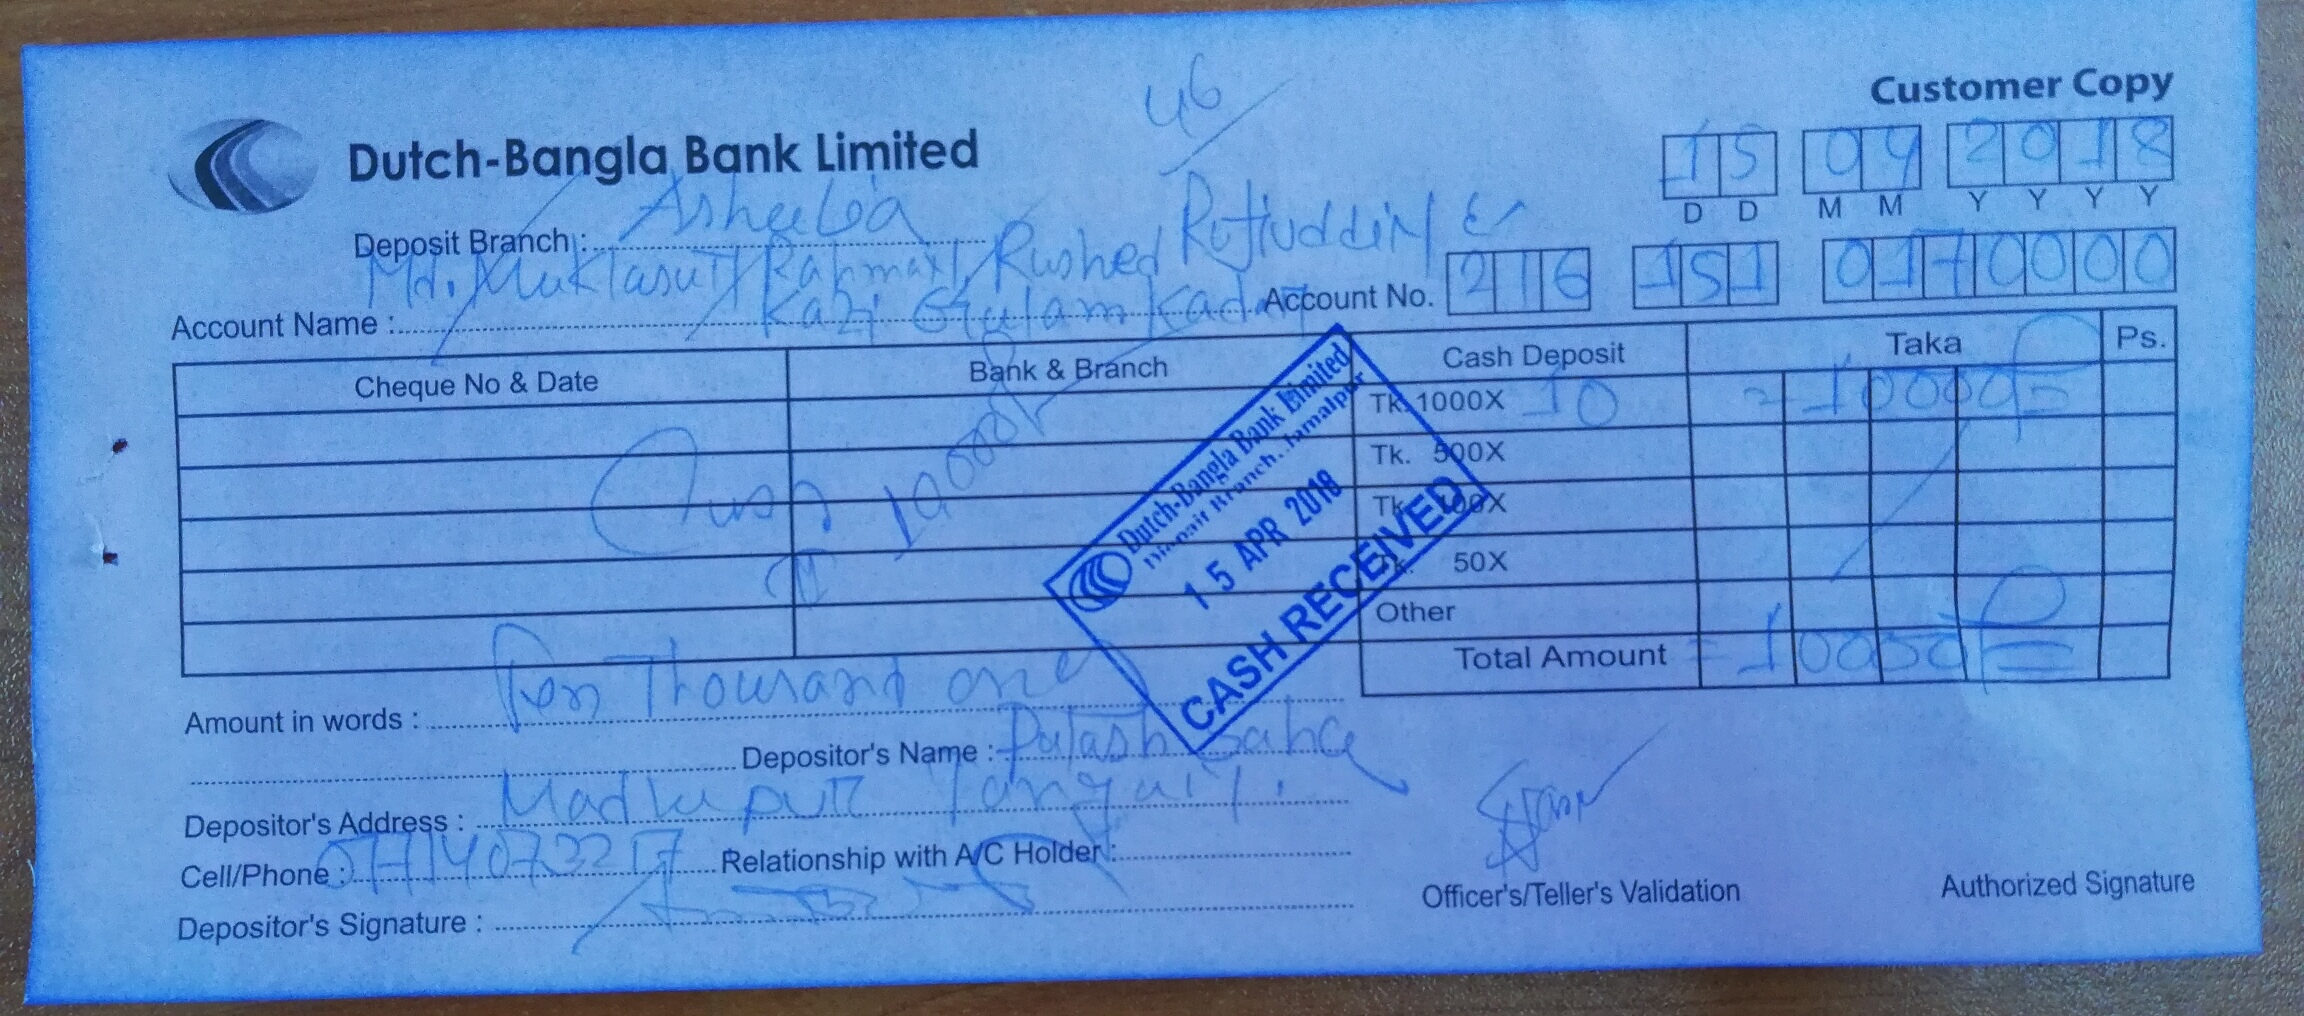 46
Customer Copy
Dutch-Bangla Bank Limited
15 04 2018
D D M M Y Y Y Y
Deposit Branch :
Md. Rahman Rushed Rofiuddin &
Kazi Golam Kader
Account Name :
Account No. 216 151 0170000
Cheque No & Date Bank & Branch Cash Deposit Taka Ps.
Tk. 1000X 10 = 10000/=
Tk. 500X
Tk. 100X
50X
Other
Total Amount = 10000/=
Cash
10000/-
Dutch-Bangla Bank Limited
Branch, Jamalpur
15 APR 2018
CASH RECEIVED
Amount in words : Ten Thousand only
Depositor's Name : Palash Saha
Depositor's Address : Madhupur Tangail.
Cell/Phone : Relationship with A/C Holder :
Depositor's Signature :
Officer's/Teller's Validation
Authorized Signature